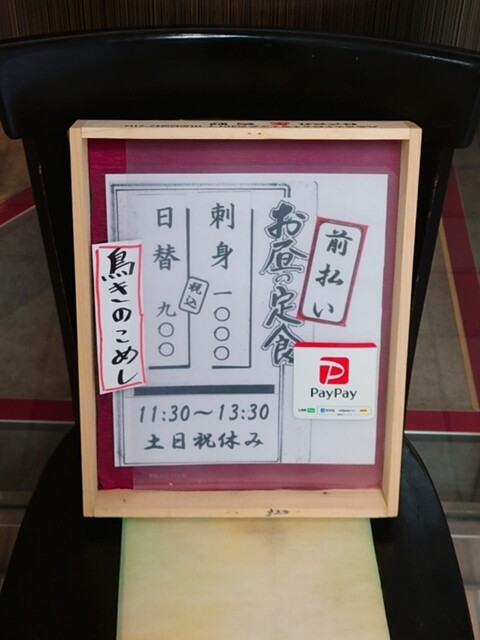 前払い
お昼の定食
刺身 一〇〇〇
税込
日替 九〇〇
鳥きのこめし
11:30～13:30
土日祝休み
PayPay